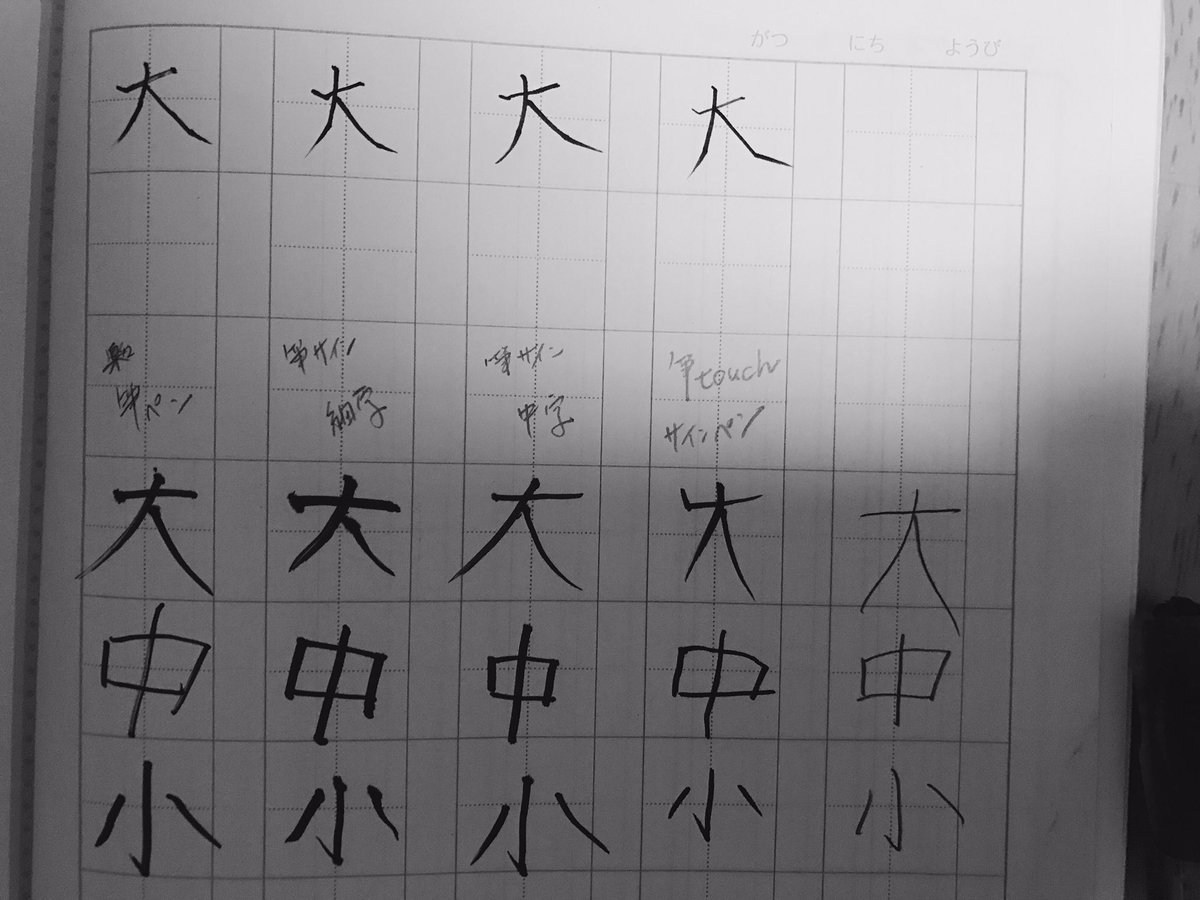 がつ にち ようび
大 大 大 大
筆ペン
筆サイン
細字
筆サイン
中字
筆touch
サインペン
大 大 大 大 大
中 中 中 中 中
小 小 小 小 小